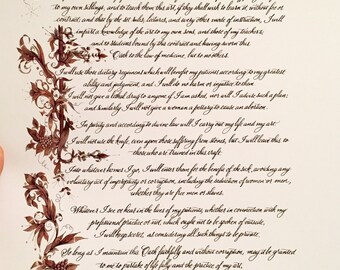 to my own siblings, and to teach them this art, if they shall wish to learn it, without fee or
contract; and that by the set rules, lectures, and every other mode of instruction, I will
impart a knowledge of the art to my own sons, and those of my teachers,
and to students bound by this contract and having sworn this
Oath to the law of medicine, but to no others.
I will use those dietary regimens which will benefit my patients according to my greatest
ability and judgment, and I will do no harm or injustice to them.
I will not give a lethal drug to anyone if I am asked, nor will I advise such a plan;
and similarly I will not give a woman a pessary to cause an abortion.
In purity and according to divine law will I carry out my life and my art.
I will not use the knife, even upon those suffering from stones, but I will leave this to
those who are trained in this craft.
Into whatever homes I go, I will enter them for the benefit of the sick, avoiding any
voluntary act of impropriety or corruption, including the seduction of women or men,
whether they are free men or slaves.
Whatever I see or hear in the lives of my patients, whether in connection with my
professional practice or not, which ought not to be spoken of outside,
I will keep secret, as considering all such things to be private.
So long as I maintain this Oath faithfully and without corruption, may it be granted
to me to partake of life fully and the practice of my art,